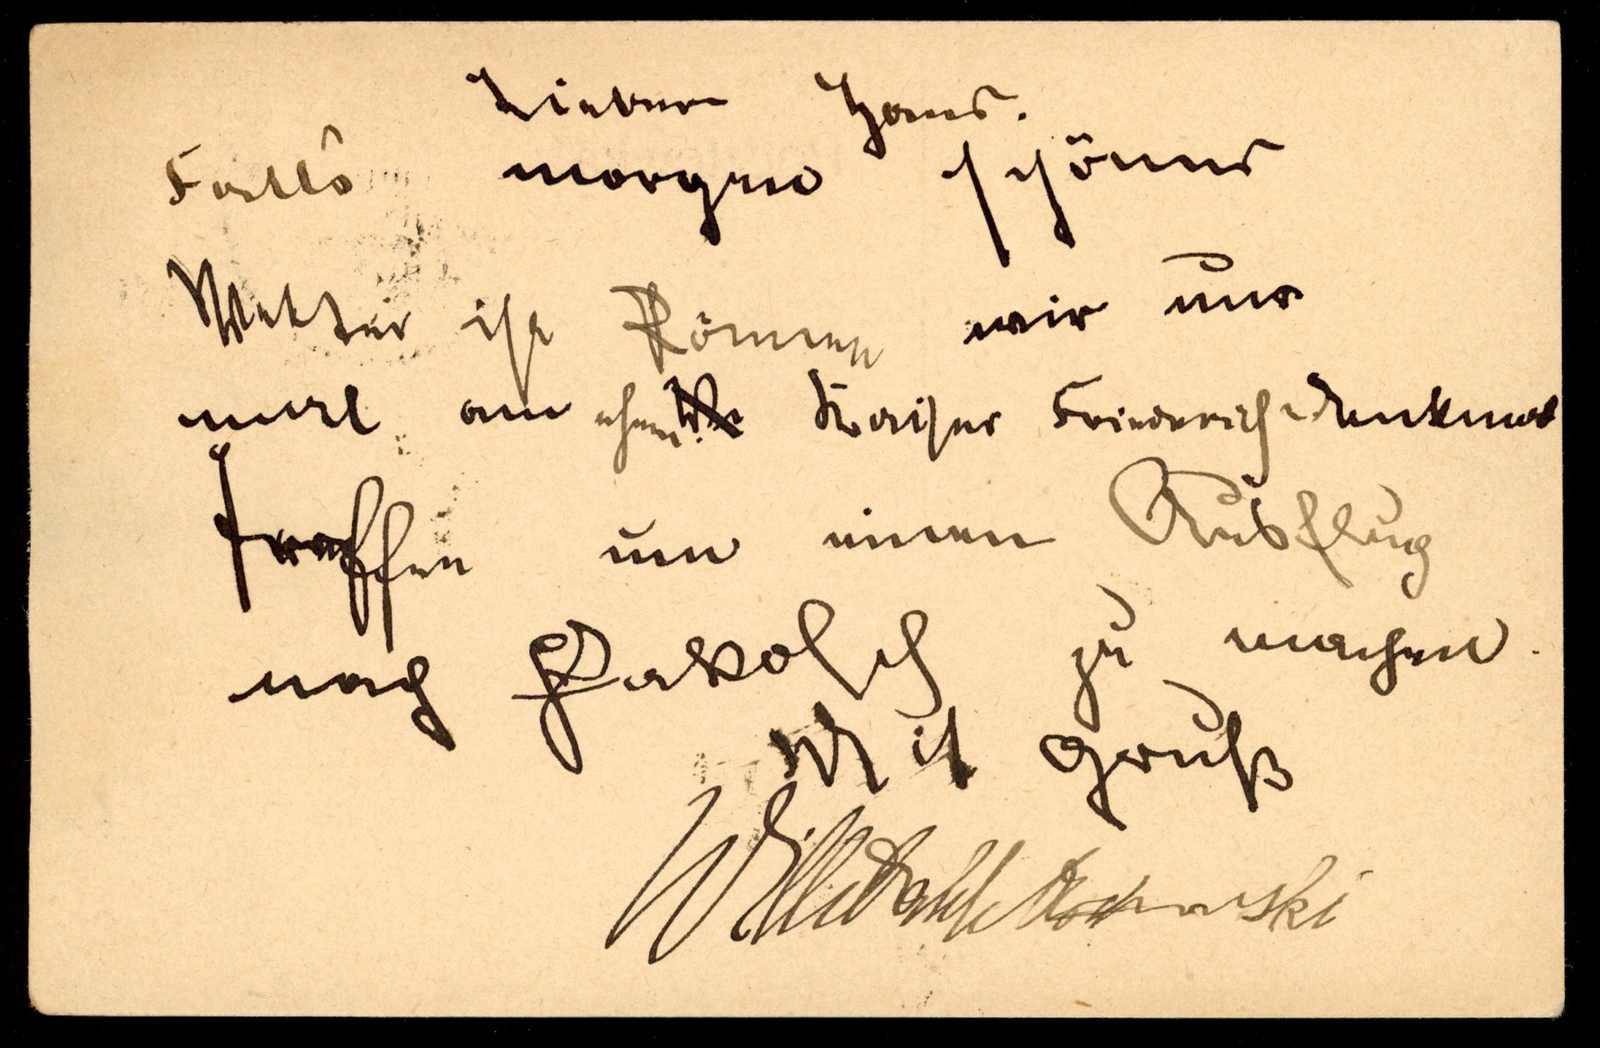 Lieber Hans.
Falls morgen schönes
Wetter ist können wir uns
mal am ehem. Kaiser Friederich-denkmal
treffen um einen Ausflug
nach Pakosch zu machen.
Mit gruß
Willi